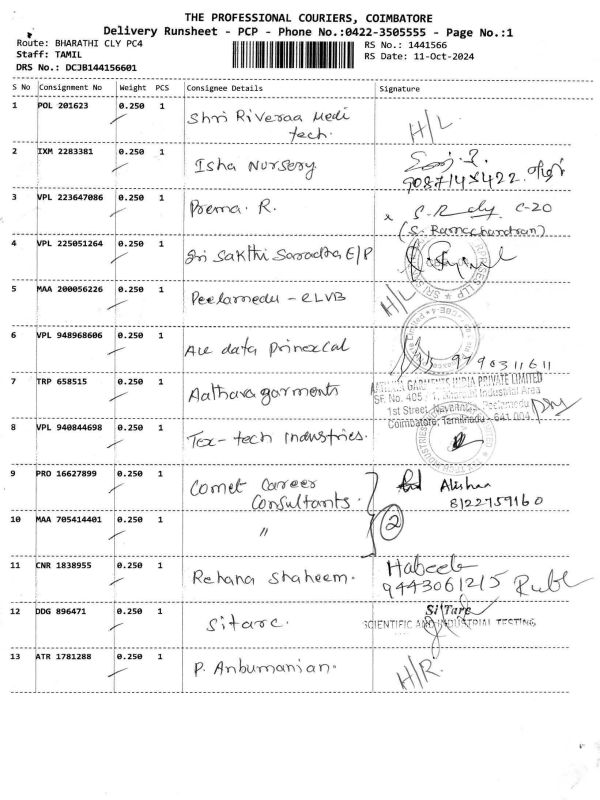 THE PROFESSIONAL COURIERS, COIMBATORE
Delivery Runsheet - PCP - Phone No.:0422-3505555 - Page No.:1
Route: BHARATHI CLY PC4
RS No.: 1441566
Staff: TAMIL
RS Date: 11-Oct-2024
DRS No.: DCJB144156601
S No Consignment No Weight PCS Consignee Details Signature
1 POL 201623 0.250 1 Shri Riveraa Medi tech. H/L
2 IXM 2283381 0.250 1 Isha Nursery
3 VPL 223647086 0.250 1 Prema. R. C-20
(S. Ramachandran)
4 VPL 225051264 0.250 1 Sri Sakthi Saradha E/P
5 MAA 200056226 0.250 1 Peelamedu - RLVB H/L
6 VPL 948968606 0.250 1 9790311611
7 TRP 658515 0.250 1 Aathava garments
GARMENTS INDIA PRIVATE LIMITED
SF. No. 405 / 1, Industrial Area
1st Street, Peelamedu
Coimbatore, Tamilnadu - 641 004.
8 VPL 940844698 0.250 1 Tex-tech industries.
9 PRO 16627899 0.250 1 Comet Career Consultants.
8122759160
10 MAA 705414401 0.250 1 〃 2
11 CNR 1838955 0.250 1 Rehana Shaheem. Habeeb
9443061215
12 DDG 896471 0.250 1 Sitarc. Si'Tarc
SCIENTIFIC AND INDUSTRIAL TESTING
13 ATR 1781288 0.250 1 P. Anbumanian. H/R.